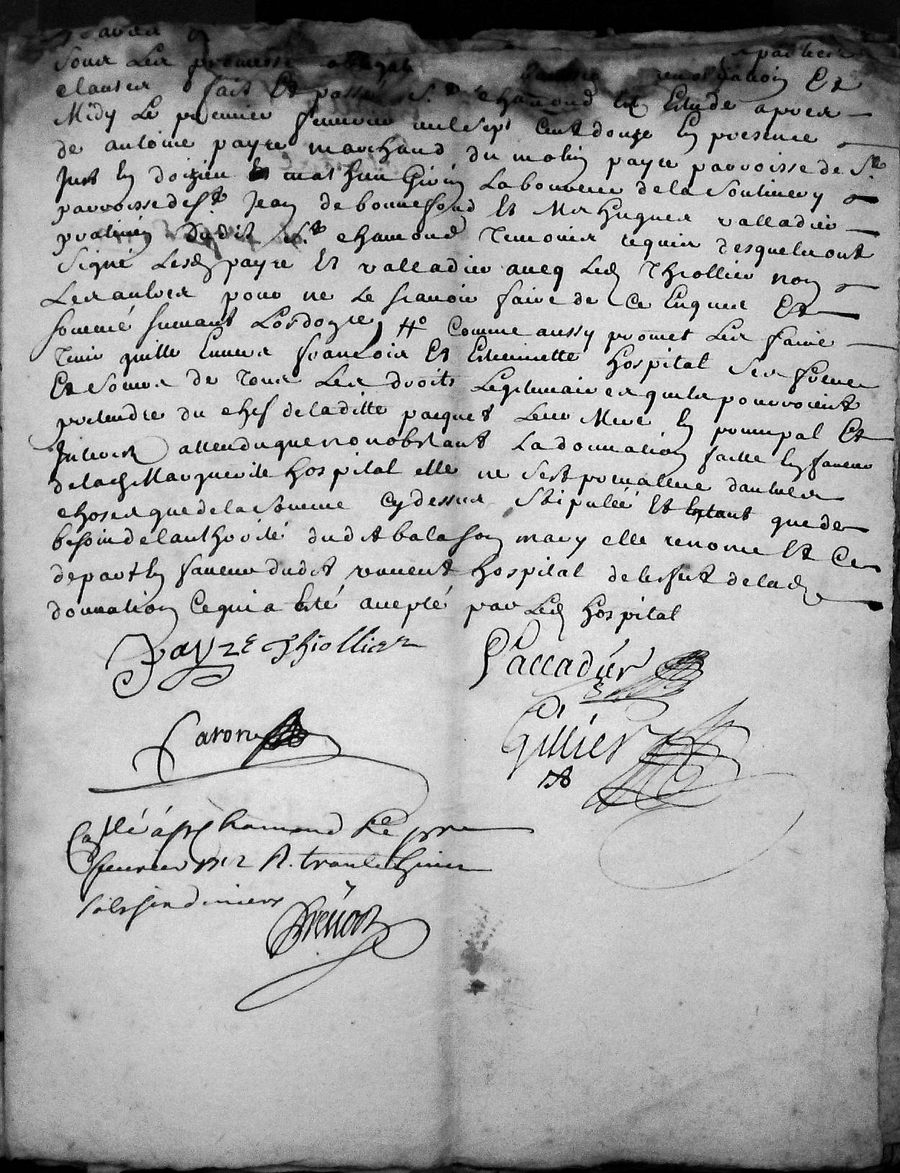 Sous les promesse obliga
clauses fait Et passé a St chamond En Etude apres
Midy Le premier feuvrier mil sept Cent douze En presence
de antoine payre marchand du molin payre parroisse de St
Just En doizieu Et mathieu Laboureur de la
parroisse de St Jean de bonnefond Et Mre hugues valladier
praticien dudit St chamond Temoins requis desquels ont
signé Lesd payre Et valladier aueq Led Thiollier non
Les autres pour ne Le sçauoir faire de Ce Enquis Et
sommé suiuant Lordonnance comme aussy promet Les faire
Tenir quitte Enuers françois Et Estiennette hospital ses frere
Et soeur de Tous Les droits Legitimaires quils pourroient
pretendre du chef de laditte paquet Leur Mere En principal Et
Interest attendu que nonobstant La donnation faitte En faueur
de lad Marguerite hospital elle ne sest preualeue dautres
choses que de la somme cy dessus Stipulée Et Entant que de
besoin de lauthorité dudit balason mary elle renonce Et Ce
depart En faueur dudit vincent hospital de leffect de lad
donnation Ce qui a Esté accepté par Led hospital
Payre Thiollier
Valladier
Caron
Gillier
Collé a St Chamond Le pre
feurier 1712 R. trante
sols six deniers